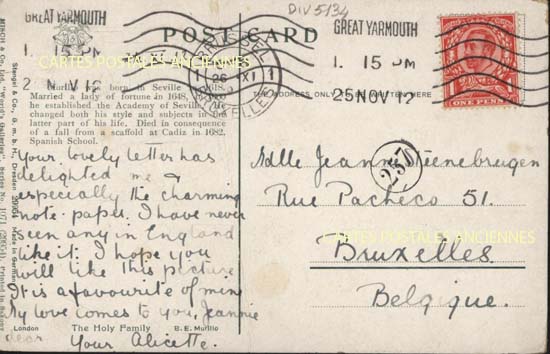 DIV 5134
GREAT YARMOUTH
1. 15 PM
25 NOV 12
GREAT YARMOUTH
1. 15 PM
25 NOV 12
POST CARD
ONE PENNY
1 26 XI 1
THE ADDRESS ONLY TO BE WRITTEN HERE
Murillo was born in Seville 1618.
Married a lady of fortune in 1648,
he established the Academy of Seville. He
changed both his style and subjects in the
latter part of his life. Died in consequence
of a fall from a scaffold at Cadiz in 1682.
Spanish School.
Your lovely letter has
delighted me &
especially the charming
note-paper. I have never
seen any in England
like it. I hope you
will like this picture
It is a favourite of mine
My love comes to you, Jeannie
dear
Your Alicette.
London The Holy Family B. E. Murillo
Mdlle Jeanne Steenebrugen
Rue Pacheco 51.
Bruxelles
Belgique.
257
Stengel & Co., G. m. b. H., Dresden 29904 Made in Germany
MISCH & Co., Ltd., "World's Galleries" Series No. 1071 Printed in Saxony
CARTES POSTALES ANCIENNES
CARTES POSTALES ANCIENNES